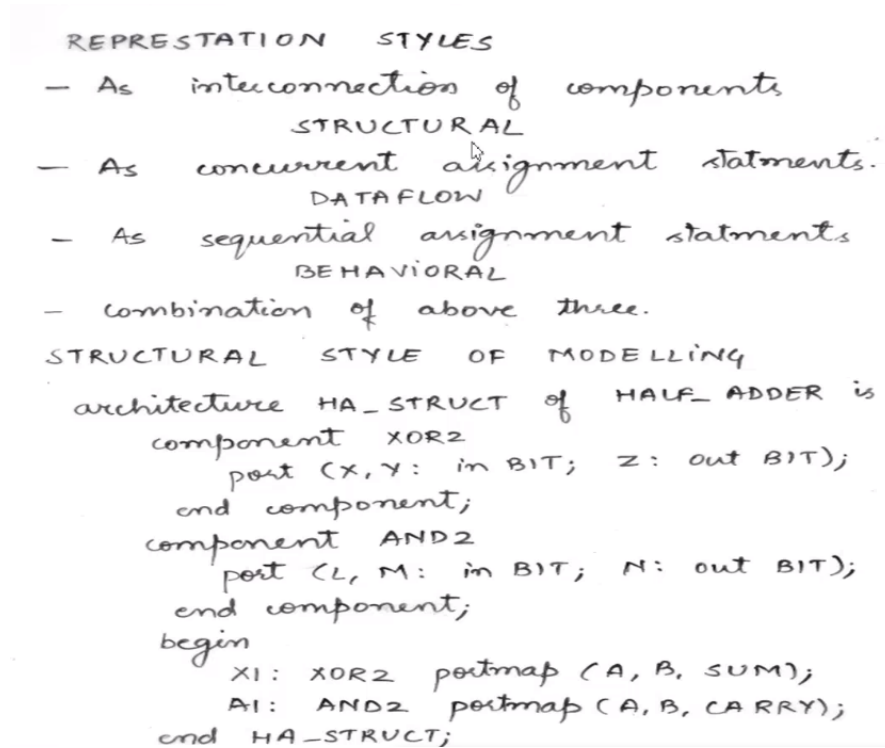 REPRESTATION STYLES
- As interconnection of components
STRUCTURAL
- As concurrent assignment statments.
DATAFLOW
- As sequential assignment statments
BEHAVIORAL
- combination of above three.
STRUCTURAL STYLE OF MODELLING
architecture HA_STRUCT of HALF_ADDER is
component XOR2
port (X, Y: in BIT; Z: out BIT);
end component;
component AND2
port (L, M: in BIT; N: out BIT);
end component;
begin
X1: XOR2 portmap (A, B, SUM);
A1: AND2 portmap (A, B, CARRY);
end HA_STRUCT;